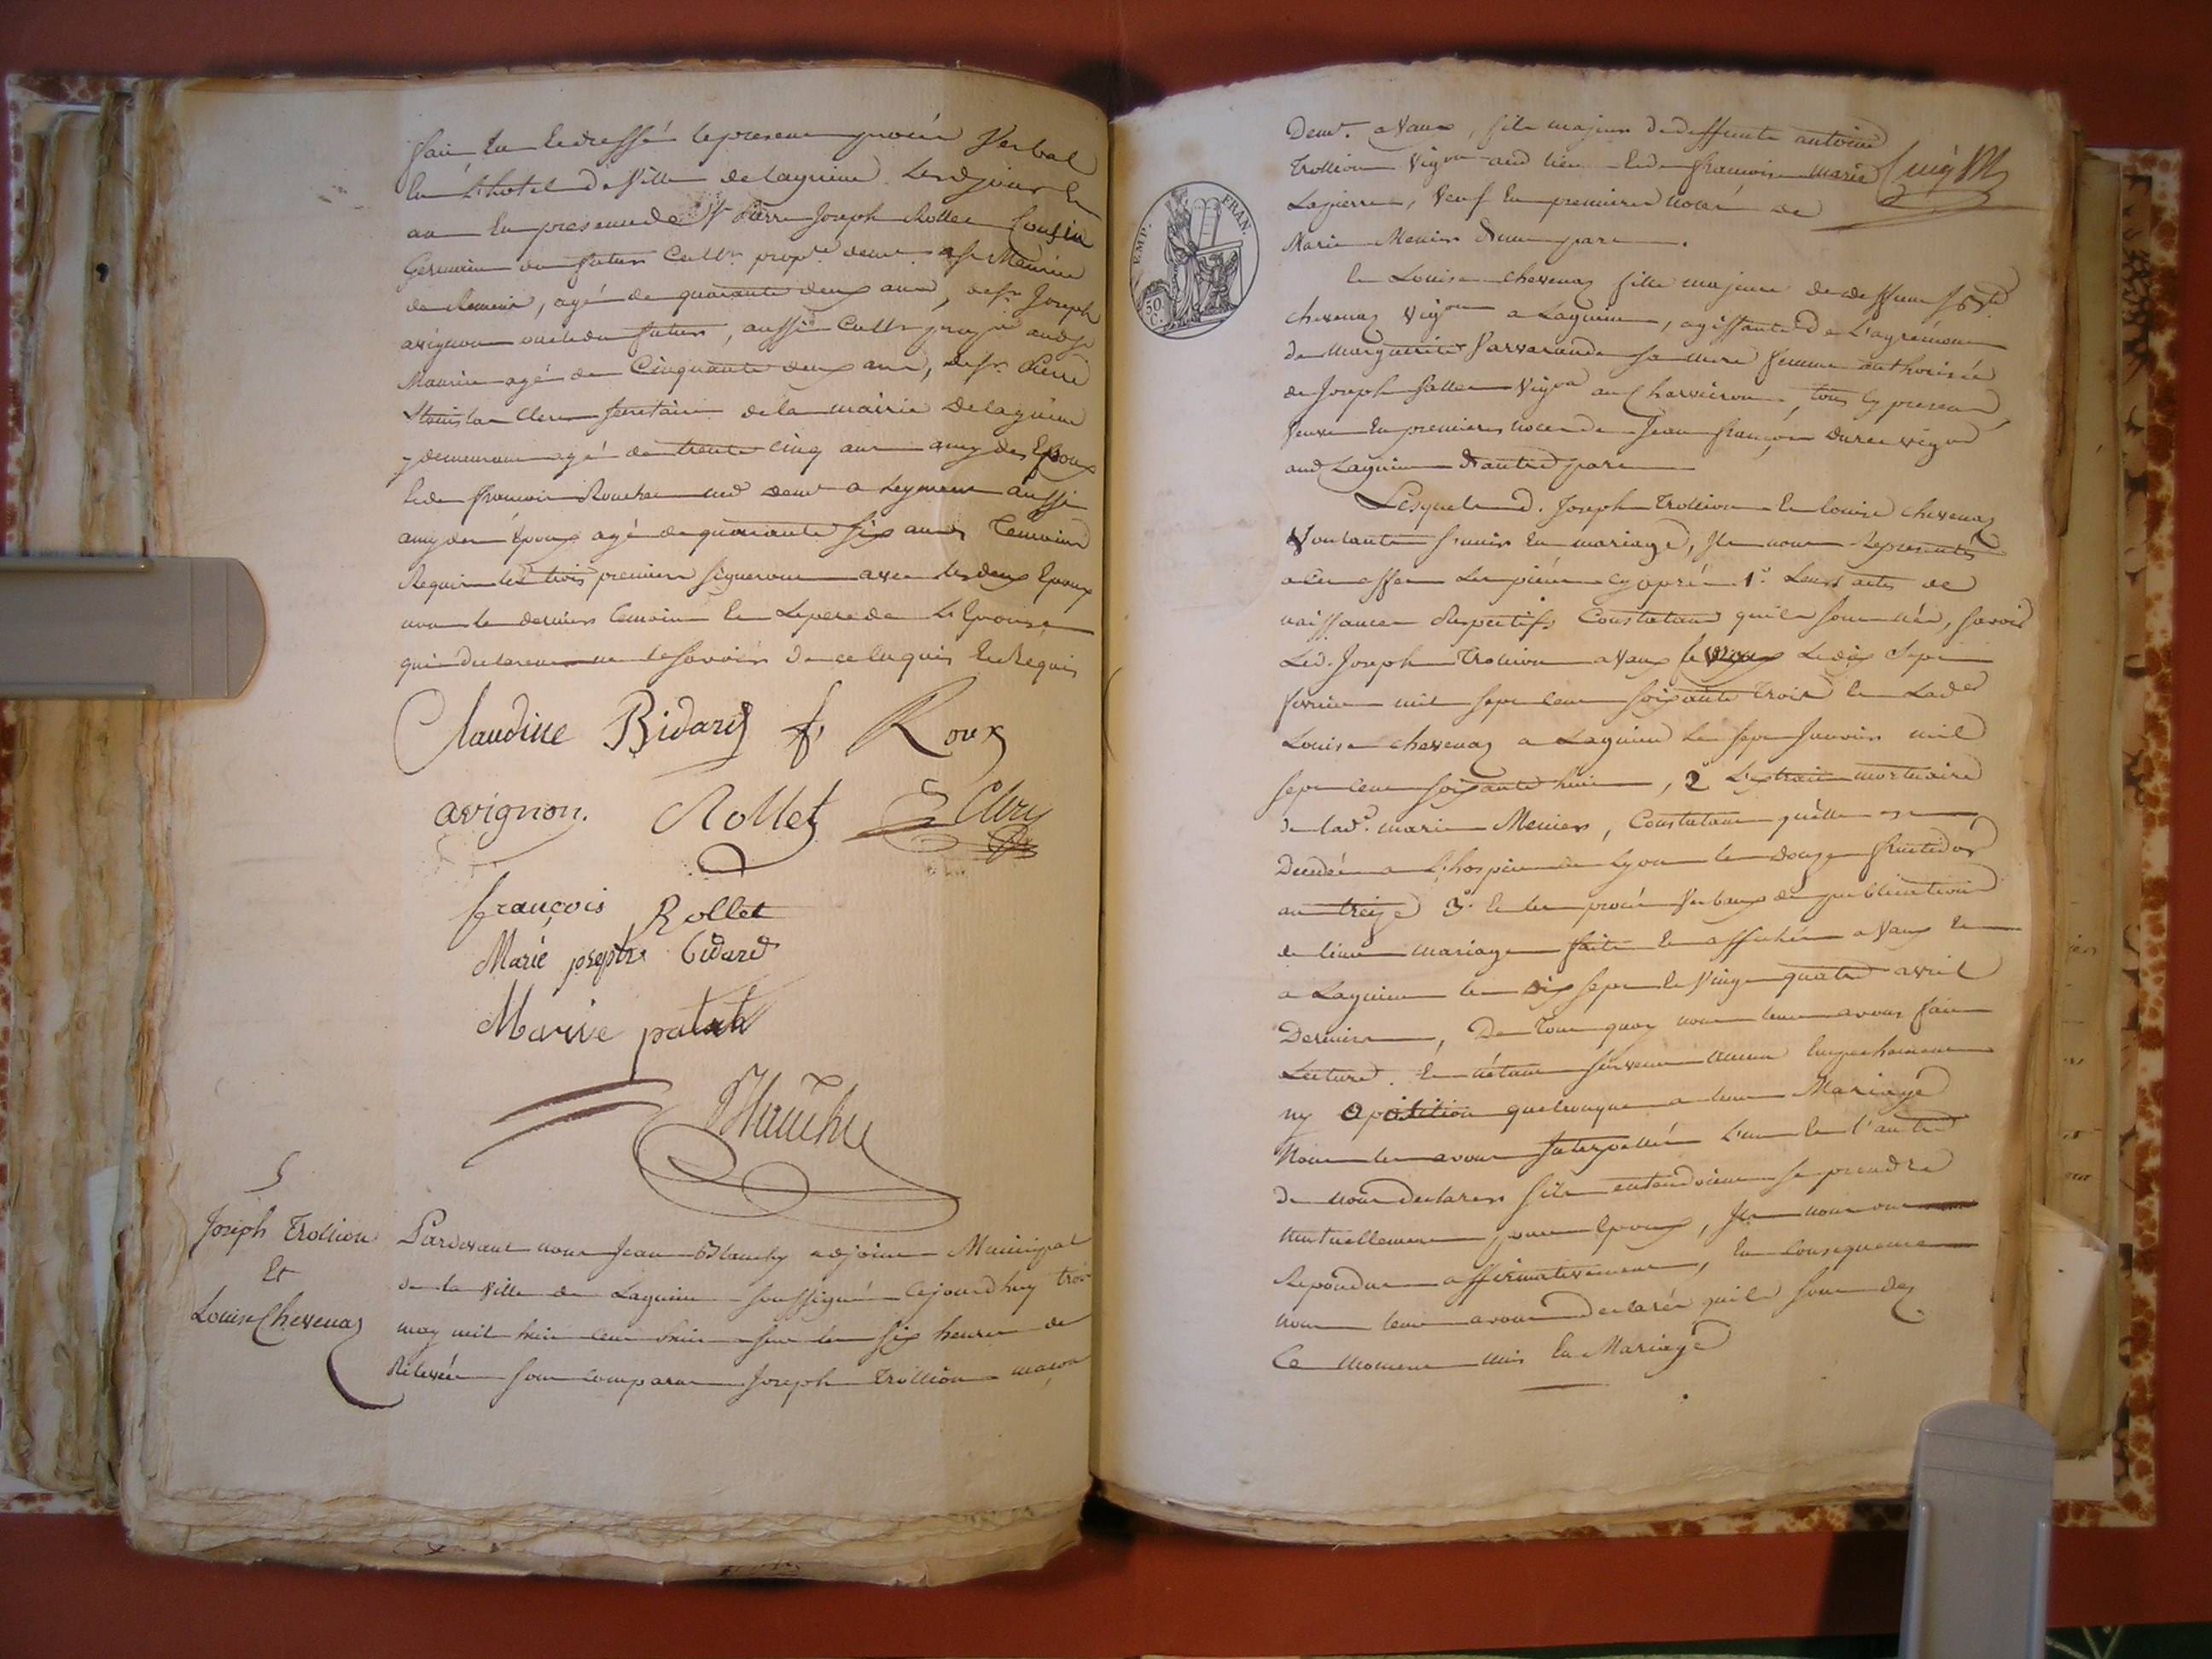 fait lu et dressé le present procès verbal
en l'hotel de ville de Lagnieu lesd jour et
an en presence de Sr Pierre Joseph Rollet Cousin
Germain du futur Cultr propre demt a St Maurice
de Remens, agé de quarante deux ans, de Sr Joseph
avignon oncle du futur, aussi Cultr propre aud St
Maurice agé de Cinquante deux ans, de Sr Pierre
Stanislas Clerc secretaire de la mairie de Lagnieu
y demeurant agé de trente cinq ans amy des Epoux
et de françois md demt a Leyment aussi
amy des époux agé de quarante six ans Temoins
Requis les trois premiers signeront avec les deux Epoux
non le dernier temoin et le pere de L'Epouse
qui declarent ne le savoir de ce enquis et Requis
Claudine Bidard f. Roux
avignon. Rollet Clerc
françois Rollet
Marie josephte bidard
Marie
Blanchy
5
Joseph Trollion
Et
Louise Chevenaz
Pardevant nous Jean Blanchy adjoint Municipal
de la ville de Lagnieu soussigné Cejourdhuy trois
may mil huit cent huit sur les six heures de
Relevée sont comparus Joseph Trollion maçon
E.MP. FRAN.
50 C.
Demt. a Vaux, fils majeur de deffunte antoine
Trollion Vigon aud lieu et de françoise Marie
Lapierre, Veuf en premieres noces de
Marie Menier d'une part.
et Louise chevenaz fille majeure de deffunt
chevenaz Vigon a Lagnieu, agissante de L'agrément
de Marguerite sa mere femme authorisée
de Joseph Vigon au, tous cy presents,
Veuve en premieres noces de Jean françois vigon
aud Lagnieu d'autre part
Lesquels d. Joseph Trollion et Louise chevenaz
Voulants s'unir en mariage, ils nous Represantés
a cet effet les pièces cy après 1º. Leurs actes de
naissances Respectifs Constatant qu'ils sont nés, savoir
Led. Joseph Trollion a Vaux le dix sept
fevrier mil sept cent soixante trois et Lade
Louise chevenaz a Lagnieu le sept Janvier mil
sept cent soixante huit, 2º L'extrait mortuaire
de lade. marie Menier, Constatant quelle est
Decedée a L'hospice de Lyon le douze fructidor
an treize 3º. et les procés verbaux de publications
de leur mariage faites et affichées a Vaux et
a Lagnieu les dix sept et vingt quatre avril
Dernier, De tout quoy nous leur avons fait
Lecture. Et n'étant survenu aucun Empechement
ny Oposition quelconque a leur Mariage
Nous les avons Interpellés L'un et l'autre
de nous declarer s'ils entendoient se prendre
mutuellement pour Epoux, Ils nous ont
Repondus affirmativement, En Consequence
nous leur avons declarés qu'ils sont dez
Ce moment unis En Mariage